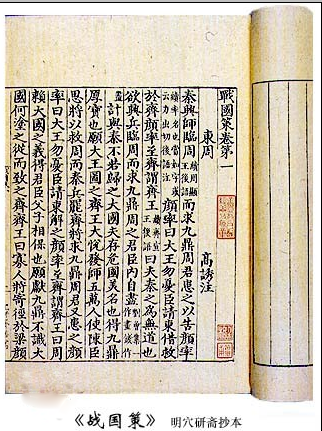 戰國策卷第一
東周 高誘注
秦興師臨周而求九鼎周君患之以告顏
率續率名也當如字或云力出切後語注顏率曰大王勿憂臣請東借救
於齊顏率至齊謂齊王曰夫秦之為無道也
欲興兵臨周而求九鼎周之君臣內自盡
計與秦不若歸之大國夫存危國美名也得九鼎
厚寶也願大王圖之齊王大悅發師五萬人使陳臣
思將以救周而秦兵罷齊將求九鼎周君又患之顏
率曰大王勿憂臣請東解之顏率至齊謂齊王曰周
賴大國之義得君臣父子相保也願獻九鼎不識大
國何塗之從而致之齊齊王曰寡人將寄徑於梁顏
《战国策》 明穴研斋抄本